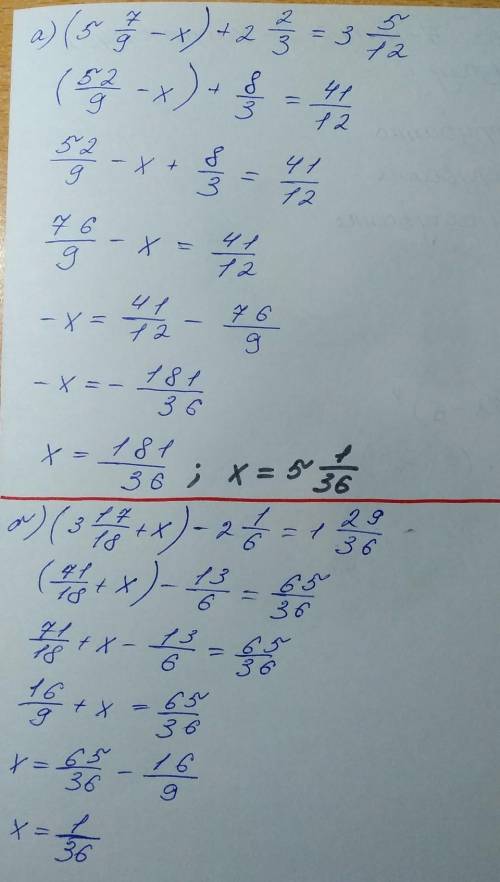 а) (5 7/9 - x) + 2 2/3 = 3 5/12
(52/9 - x) + 8/3 = 41/12
52/9 - x + 8/3 = 41/12
76/9 - x = 41/12
-x = 41/12 - 76/9
-x = - 181/36
x = 181/36 ; x = 5 1/36
б) (3 17/18 + x) - 2 1/6 = 1 29/36
(71/18 + x) - 13/6 = 65/36
71/18 + x - 13/6 = 65/36
16/9 + x = 65/36
x = 65/36 - 16/9
x = 1/36